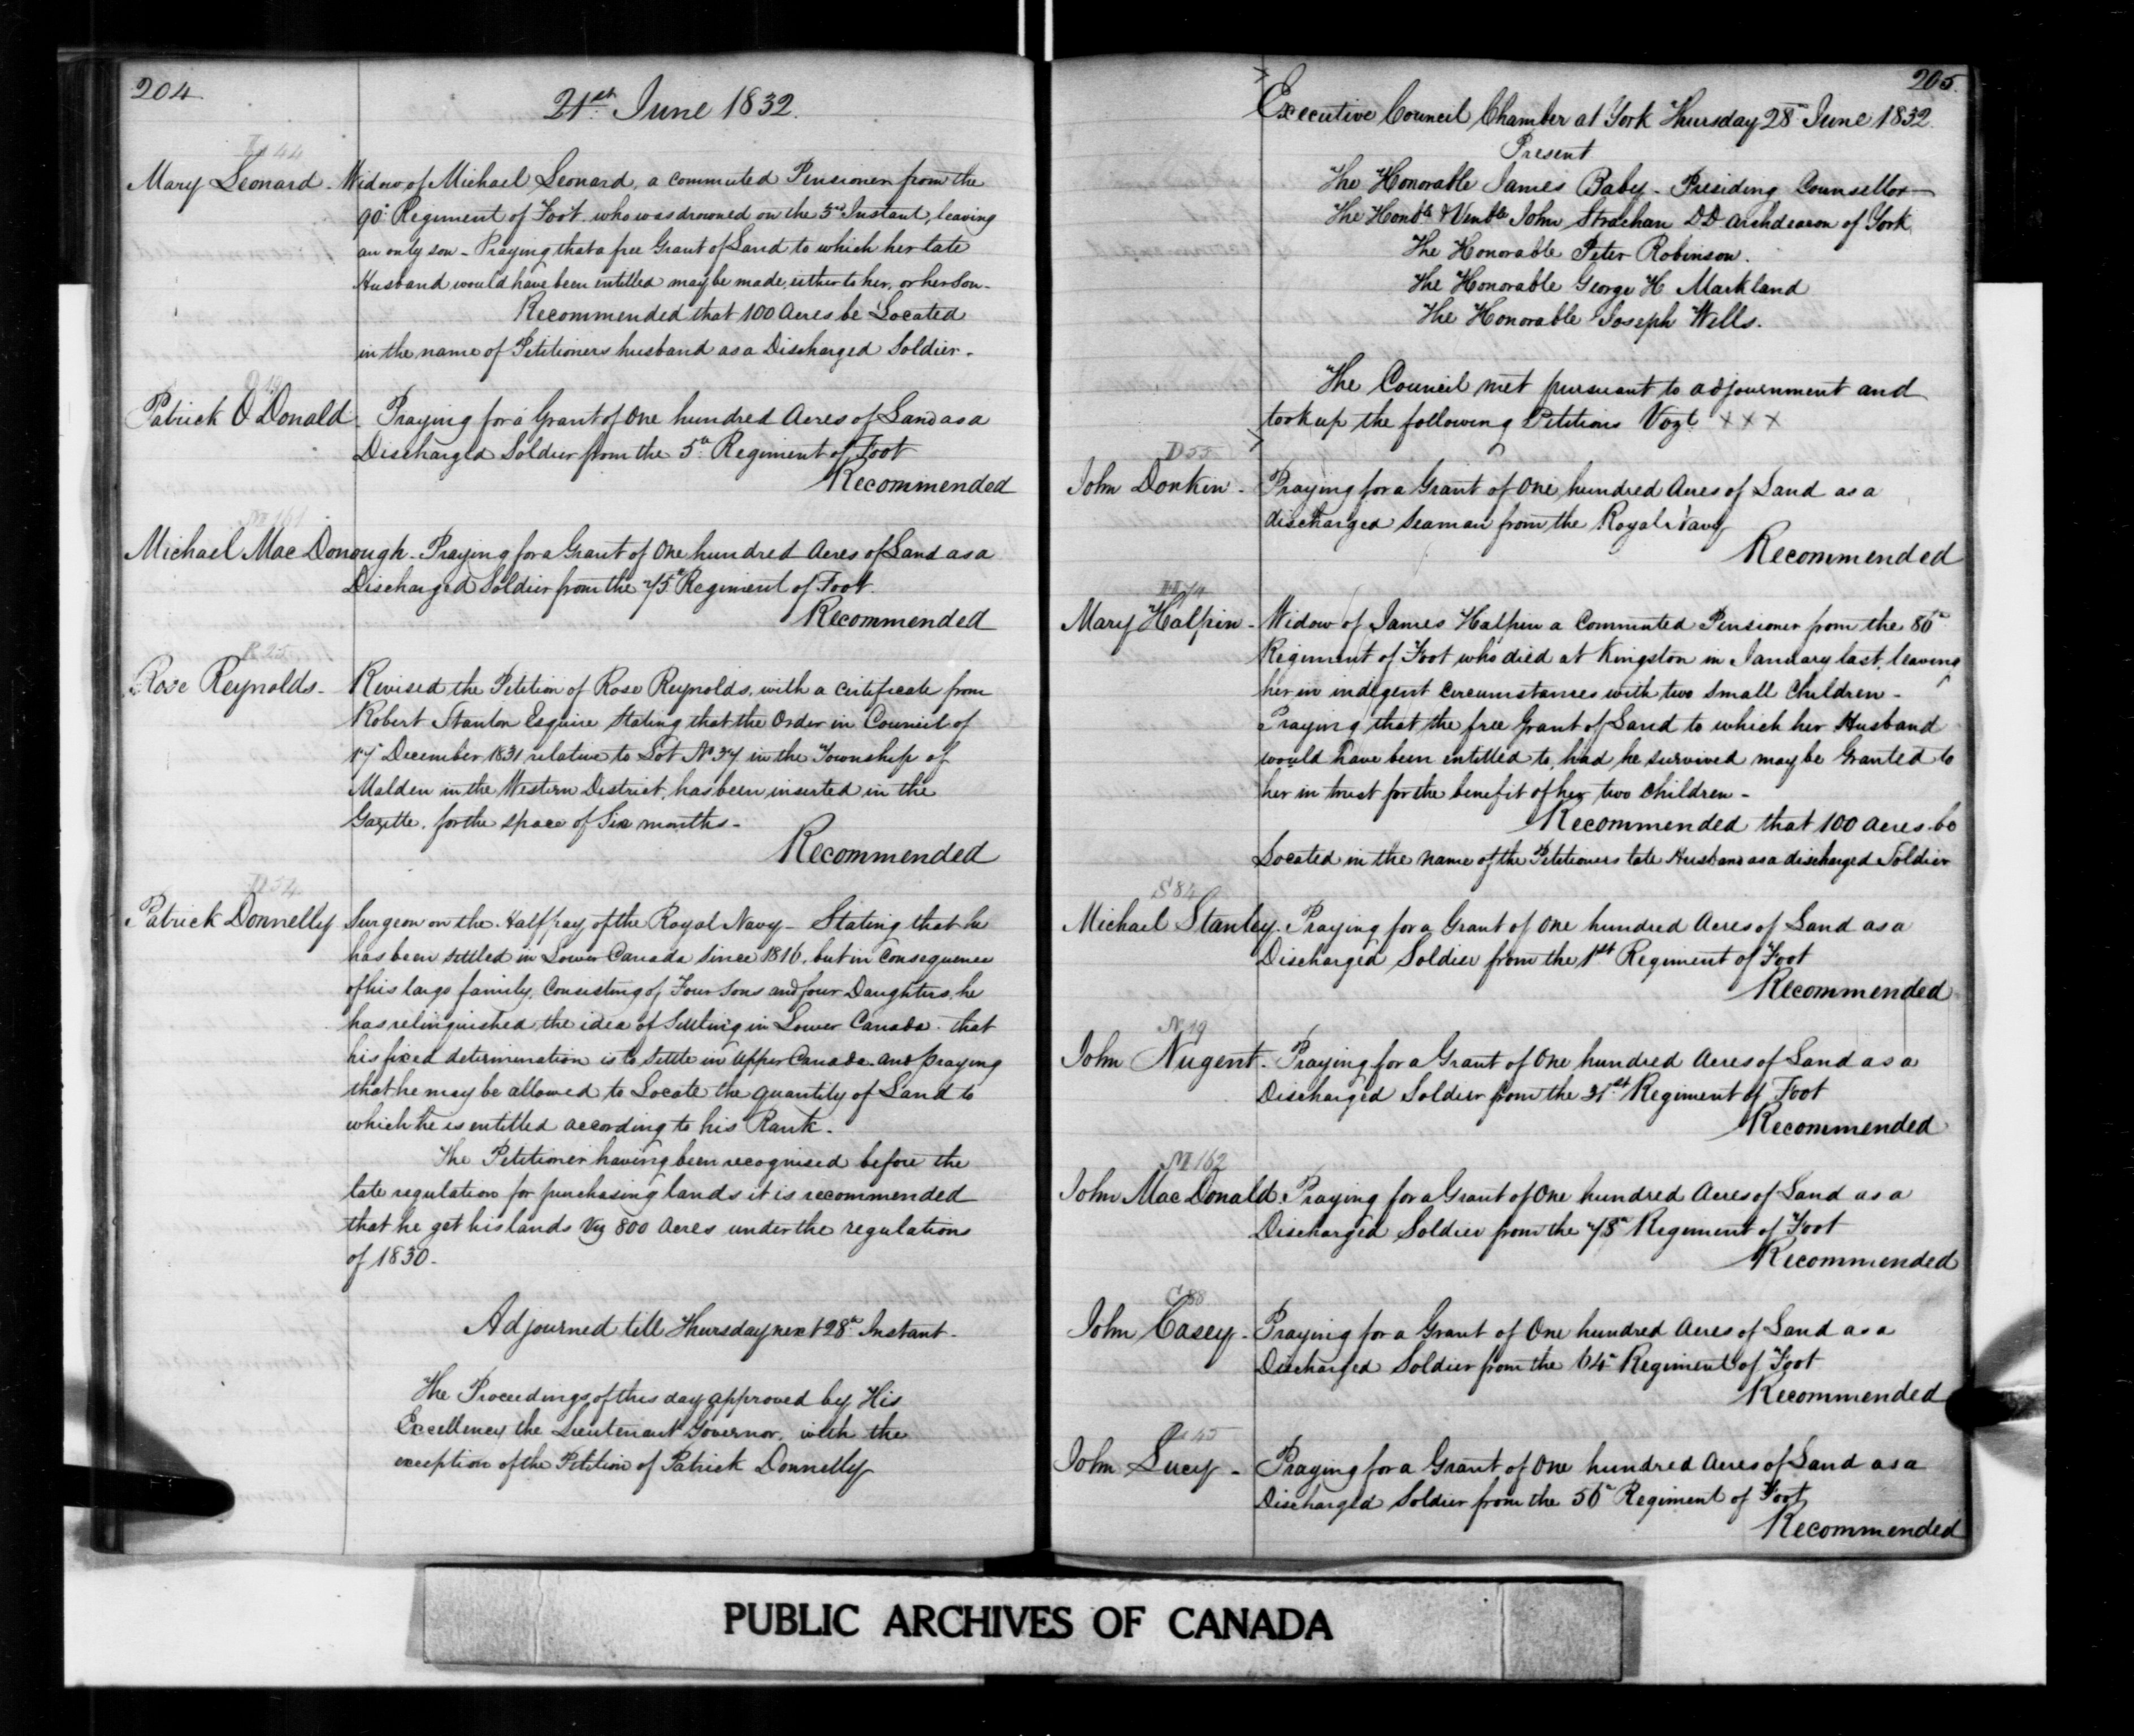 204
21st June 1832.
L 44
Mary Leonard - Widow of Michael Leonard, a commuted Pensioner from the
90th Regiment of Foot who was drowned on the 3rd Instant, leaving
an only son - Praying that a free Grant of Land to which her late
Husband would have been entitled may be made, either to her, or her son -
Recommended that 100 Acres be Located
in the name of Petitioners husband as a Discharged Soldier -
O 19
Patrick O'Donald - Praying for a Grant of One hundred Acres of Land as a
Discharged Soldier from the 5th Regiment of Foot
Recommended
M 161
Michael Mac Donough - Praying for a Grant of One hundred Acres of Land as a
Discharged Soldier from the 75th Regiment of Foot.
Recommended
R 25
Rose Reynolds - Revised the Petition of Rose Reynolds, with a certificate from
Robert Stanton Esquire stating that the Order in Council of
17th December 1831 relative to Lot No 37 in the Township of
Malden in the Western District, has been inserted in the
Gazette, for the space of Six months -
Recommended
D 54
Patrick Donnelly Surgeon on the Half pay of the Royal Navy - Stating that he
has been settled in Lower Canada since 1816, but in consequence
of his large family, Consisting of Four Sons and four Daughters, he
has relinquished the idea of Settling in Lower Canada - that
his fixed determination is to Settle in Upper Canada and praying
that he may be allowed to Locate the quantity of Land to
which he is entitled according to his Rank -
The Petitioner having been recognised before the
late regulation for purchasing lands it is recommended
that he get his lands Viz 800 Acres under the regulations
of 1830 -
Adjourned till Thursday next 28th Instant -
The Proceedings of this day approved by His
Excellency the Lieutenant Governor, with the
exception of the Petition of Patrick Donnelly
205
Executive Council Chamber at York Thursday 28th June 1832.
Present
The Honorable James Baby - Presiding Counsellor
The Honble & Venble John Strachan DD Archdeacon of York
The Honorable Peter Robinson.
The Honorable George H Markland
The Honorable Joseph Wells.
The Council met pursuant to adjournment and
took up the following Petitions Vizt × × ×
D 55
John Donkin - Praying for a Grant of One hundred Acres of Land as a
discharged Seaman from the Royal Navy
Recommended
H 74
Mary Halpin - Widow of James Halpin a Commuted Pensioner from the 86th
Regiment of Foot who died at Kingston in January last, leaving
her in indigent circumstances with two small children -
Praying that the free Grant of Land to which her Husband
would have been entitled to, had he survived may be Granted to
her in trust for the benefit of her two children -
Recommended that 100 acres be
Located in the name of the Petitioners late Husband as a discharged Soldier
S 84
Michael Stanley - Praying for a Grant of One hundred Acres of Land as a
Discharged Soldier from the 1st Regiment of Foot
Recommended
N 19
John Nugent - Praying for a Grant of One hundred Acres of Land as a
Discharged Soldier from the 31st Regiment of Foot
Recommended
M 162
John Mac Donald - Praying for a Grant of One hundred Acres of Land as a
Discharged Soldier from the Regiment of Foot
Recommended
C 88
John Casey - Praying for a Grant of One hundred Acres of Land as a
Discharged Soldier from the 64th Regiment of Foot
Recommended
45
John Lucy - Praying for a Grant of One hundred Acres of Land as a
Discharged Soldier from the 56th Regiment of Foot
Recommended
PUBLIC ARCHIVES OF CANADA